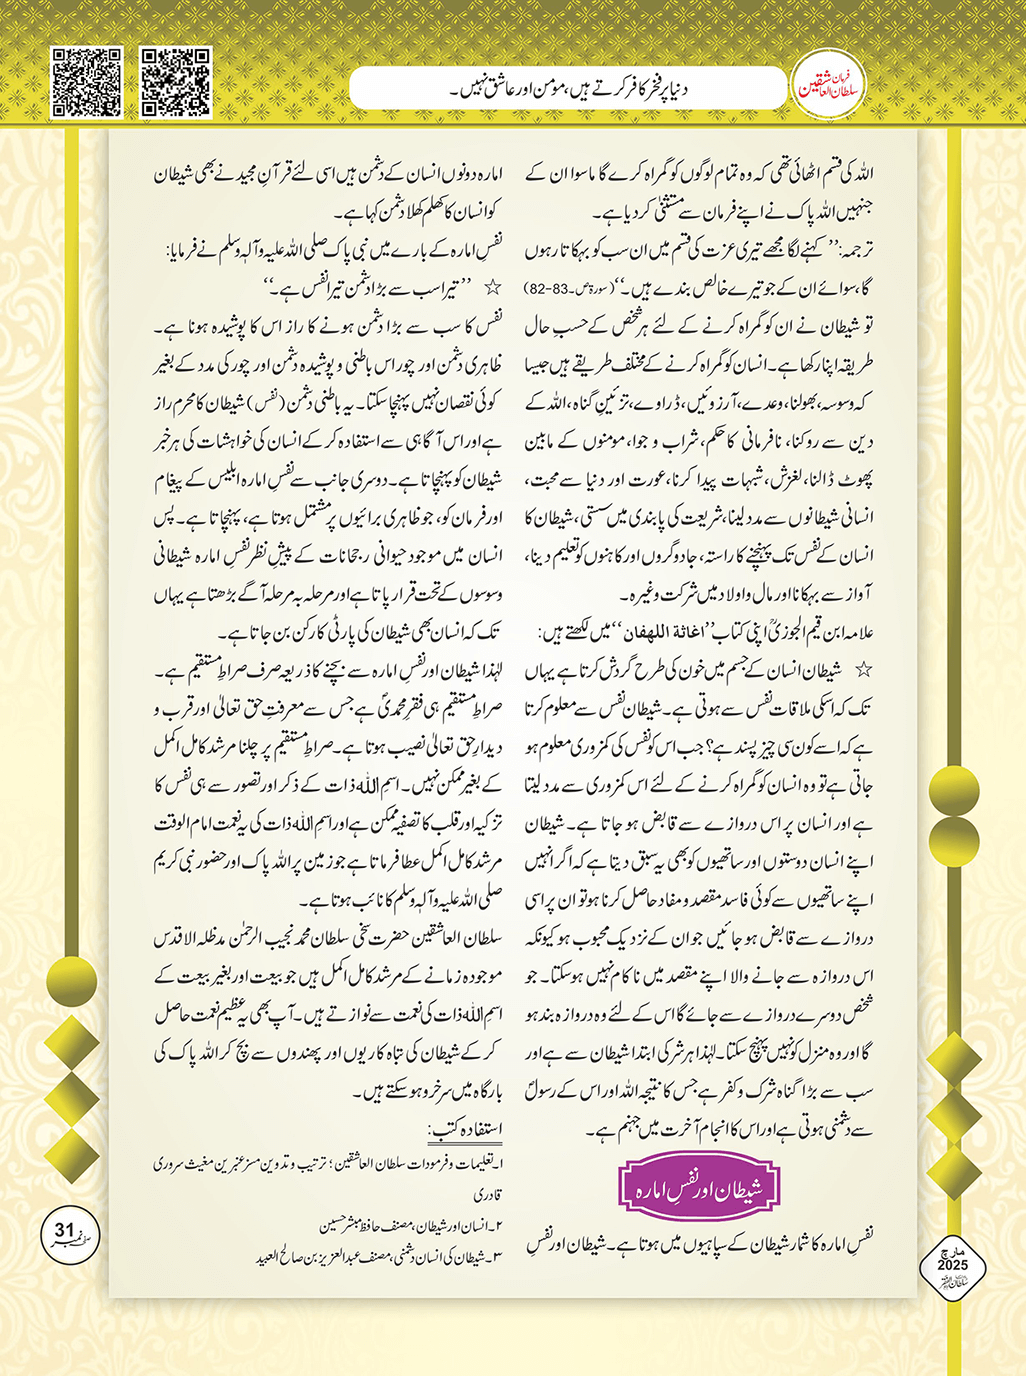 فرمان سلطان العاشقین
دنیا پر فخر کافر کرتے ہیں، مومن اور عاشق نہیں۔
اللہ کی قسم اٹھائی تھی کہ وہ تمام لوگوں کو گمراہ کرے گا ماسوا ان کے
جنہیں اللہ پاک نے اپنے فرمان سے مستثنیٰ کر دیا ہے۔
ترجمہ: ’’کہنے لگا مجھے تیری عزت کی قسم میں ان سب کو بہکاتا رہوں
گا، سوائے ان کے جو تیرے خالص بندے ہیں۔‘‘ (سورۃ ص۔ 83-82)
تو شیطان نے ان کو گمراہ کرنے کے لئے ہر شخص کے حسبِ حال
طریقہ اپنا رکھا ہے۔ انسان کو گمراہ کرنے کے مختلف طریقے ہیں جیسا
کہ وسوسہ، بھولنا، وعدے، آرزوئیں، ڈراوے، تزئینِ گناہ، اللہ کے
دین سے روکنا، نافرمانی کا حکم، شراب و جوا، مومنوں کے مابین
پھوٹ ڈالنا، لغزش، شبہات پیدا کرنا، عورت اور دنیا سے محبت،
انسانی شیطانوں سے مدد لینا، شریعت کی پابندی میں سستی، شیطان کا
انسان کے نفس تک پہنچنے کا راستہ، جادوگروں اور کاہنوں کو تعلیم دینا،
آواز سے بہکانا اور مال و اولاد میں شرکت وغیرہ۔
علامہ ابن قیم الجوزیؒ اپنی کتاب ’’اغاثة اللهفان‘‘ میں لکھتے ہیں:
☆ شیطان انسان کے جسم میں خون کی طرح گردش کرتا ہے یہاں
تک کہ اسکی ملاقات نفس سے ہوتی ہے۔ شیطان نفس سے معلوم کرتا
ہے کہ اسے کون سی چیز پسند ہے؟ جب اس کو نفس کی کمزوری معلوم ہو
جاتی ہے تو وہ انسان کو گمراہ کرنے کے لئے اس کمزوری سے مدد لیتا
ہے اور انسان پر اس دروازے سے قابض ہو جاتا ہے۔ شیطان
اپنے انسان دوستوں اور ساتھیوں کو بھی یہ سبق دیتا ہے کہ اگر انہیں
اپنے ساتھیوں سے کوئی فاسد مقصد و مفاد حاصل کرنا ہو تو ان پر اسی
دروازے سے قابض ہو جائیں جو ان کے نزدیک محبوب ہو کیونکہ
اس دروازہ سے جانے والا اپنے مقصد میں ناکام نہیں ہو سکتا۔ جو
شخص دوسرے دروازے سے جائے گا اس کے لئے وہ دروازہ بند ہو
گا اور وہ منزل کو نہیں پہنچ سکتا۔ لہٰذا ہر شر کی ابتدا شیطان سے ہے اور
سب سے بڑا گناہ شرک و کفر ہے جس کا نتیجہ اللہ اور اس کے رسولؐ
سے دشمنی ہوتی ہے اور اس کا انجام آخرت میں جہنم ہے۔
شیطان اور نفسِ امارہ
نفسِ امارہ کا شمار شیطان کے سپاہیوں میں ہوتا ہے۔ شیطان اور نفسِ
امارہ دونوں انسان کے دشمن ہیں اسی لئے قرآنِ مجید نے بھی شیطان
کو انسان کا کھلم کھلا دشمن کہا ہے۔
نفسِ امارہ کے بارے میں نبی پاک صلی اللہ علیہ وآلہٖ وسلم نے فرمایا:
☆ ’’تیرا سب سے بڑا دشمن تیرا نفس ہے۔‘‘
نفس کا سب سے بڑا دشمن ہونے کا راز اس کا پوشیدہ ہونا ہے۔
ظاہری دشمن اور چور اس باطنی و پوشیدہ دشمن اور چور کی مدد کے بغیر
کوئی نقصان نہیں پہنچا سکتا۔ یہ باطنی دشمن (نفس) شیطان کا محرم راز
ہے اور اس آگاہی سے استفادہ کر کے انسان کی خواہشات کی ہر خبر
شیطان کو پہنچاتا ہے۔ دوسری جانب سے نفسِ امارہ ابلیس کے پیغام
اور فرمان کو، جو ظاہری برائیوں پر مشتمل ہوتا ہے، پہنچاتا ہے۔ پس
انسان میں موجود حیوانی رجحانات کے پیشِ نظر نفسِ امارہ شیطانی
وسوسوں کے تحت قرار پاتا ہے اور مرحلہ بہ مرحلہ آگے بڑھتا ہے یہاں
تک کہ انسان بھی شیطان کی پارٹی کا رکن بن جاتا ہے۔
لہٰذا شیطان اور نفسِ امارہ سے بچنے کا ذریعہ صرف صراطِ مستقیم ہے۔
صراطِ مستقیم ہی فقرِ محمدیؐ ہے جس سے معرفتِ حق تعالیٰ اور قرب و
دیدارِ حق تعالیٰ نصیب ہوتا ہے۔ صراطِ مستقیم پر چلنا مرشد کامل اکمل
کے بغیر ممکن نہیں۔ اسمِ اللہ ذات کے ذکر اور تصور سے ہی نفس کا
تزکیہ اور قلب کا تصفیہ ممکن ہے اور اسمِ اللہ ذات کی یہ نعمت امام الوقت
مرشد کامل اکمل عطا فرماتا ہے جو زمین پر اللہ پاک اور حضور نبی کریم
صلی اللہ علیہ وآلہٖ وسلم کا نائب ہوتا ہے۔
سلطان العاشقین حضرت سخی سلطان محمد نجیب الرحمٰن مدظلہ الاقدس
موجودہ زمانے کے مرشد کامل اکمل ہیں جو بیعت اور بغیر بیعت کے
اسمِ اللہ ذات کی نعمت سے نوازتے ہیں۔ آپ بھی یہ عظیم نعمت حاصل
کر کے شیطان کی تباہ کاریوں اور پھندوں سے بچ کر اللہ پاک کی
بارگاہ میں سرخرو ہو سکتے ہیں۔
استفادہ کتب:
۱۔ تعلیمات و فرمودات سلطان العاشقین؛ ترتیب و تدوین مسز عنبرین مغیث سروری
قادری
۲۔ انسان اور شیطان، مصنف حافظ مبشر حسین
۳۔ شیطان کی انسان دشمنی، مصنف عبدالعزیز بن صالح العبید
31
صفحہ نمبر
مارچ
2025